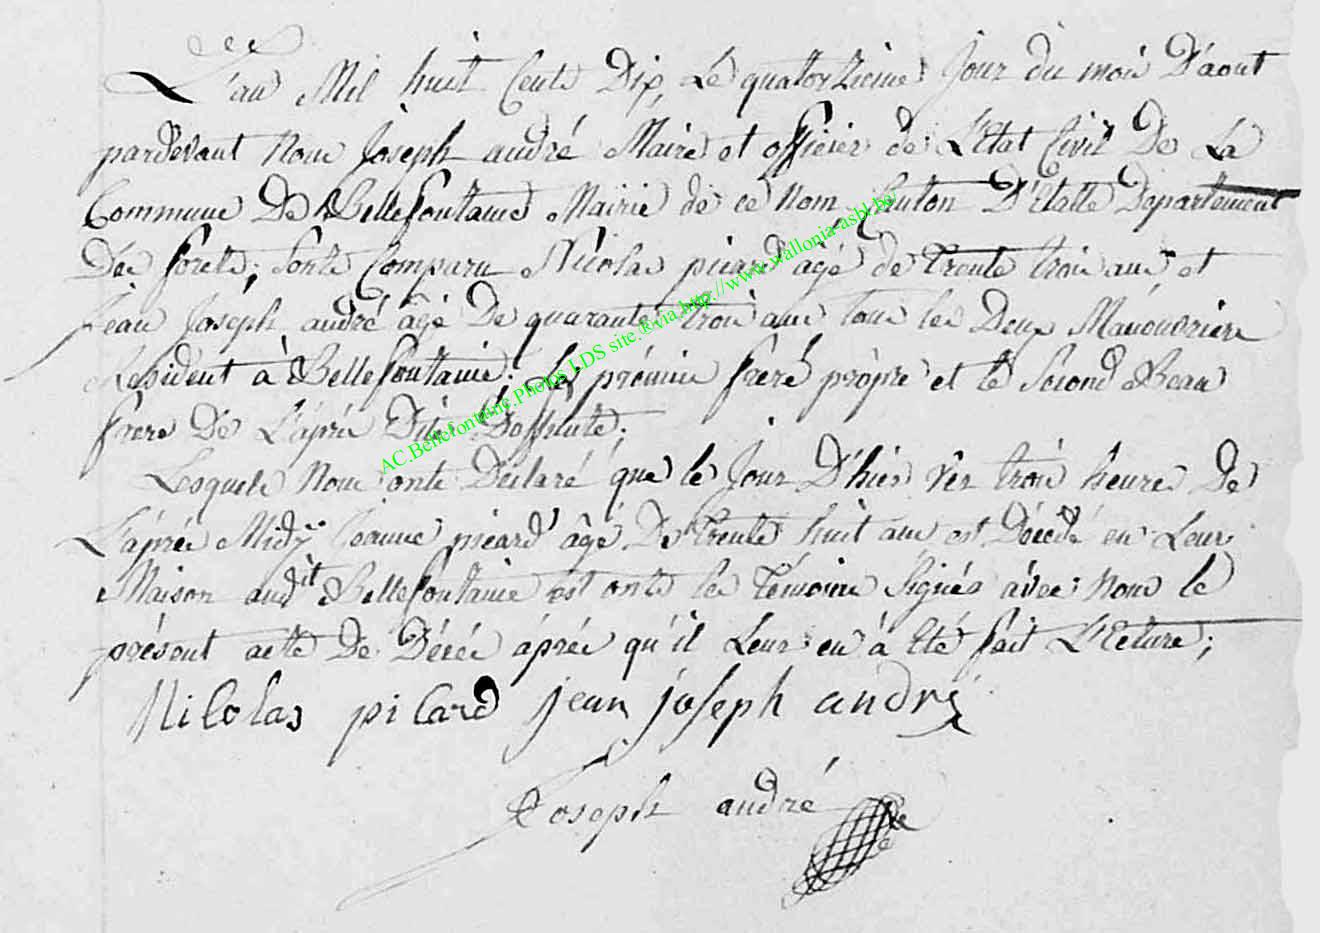 L'an Mil huit Cents Dix, Le quatorzieme Jour du mois D'aout
pardevant Nous Joseph andré Maire et officier de L'Etat Civil De La
Commune De Bellefontaine Mairie de ce Nom, Canton D'Etalle Departement
Des forets; sonts Comparu Nicolas picard agé de trente trois ans et
Jean Joseph andré âgé De quarante trois ans tous les Deux Manouvriers
Résident à Bellefontaine; Le prémier frere propre et le second Beau
frere De L'áprés Dite Deffunte;
Lesquels Nous onts Déclaré que le Jour D'hier ver trois heures De
L'áprés Midÿ Jeanne picard âgé De trente huit ans est Décédé en Leurs
Maison audit Bellefontaine est onts les Témoins signés avec Nous le
présent acte De Décés áprés qu'il Leurs en à Eté fait L'Eture;
Nicolas picard jean joseph andré
Joseph andré
AC.Bellefontaine.Photos LDS site.®via http://www.wallonia-asbl.be/